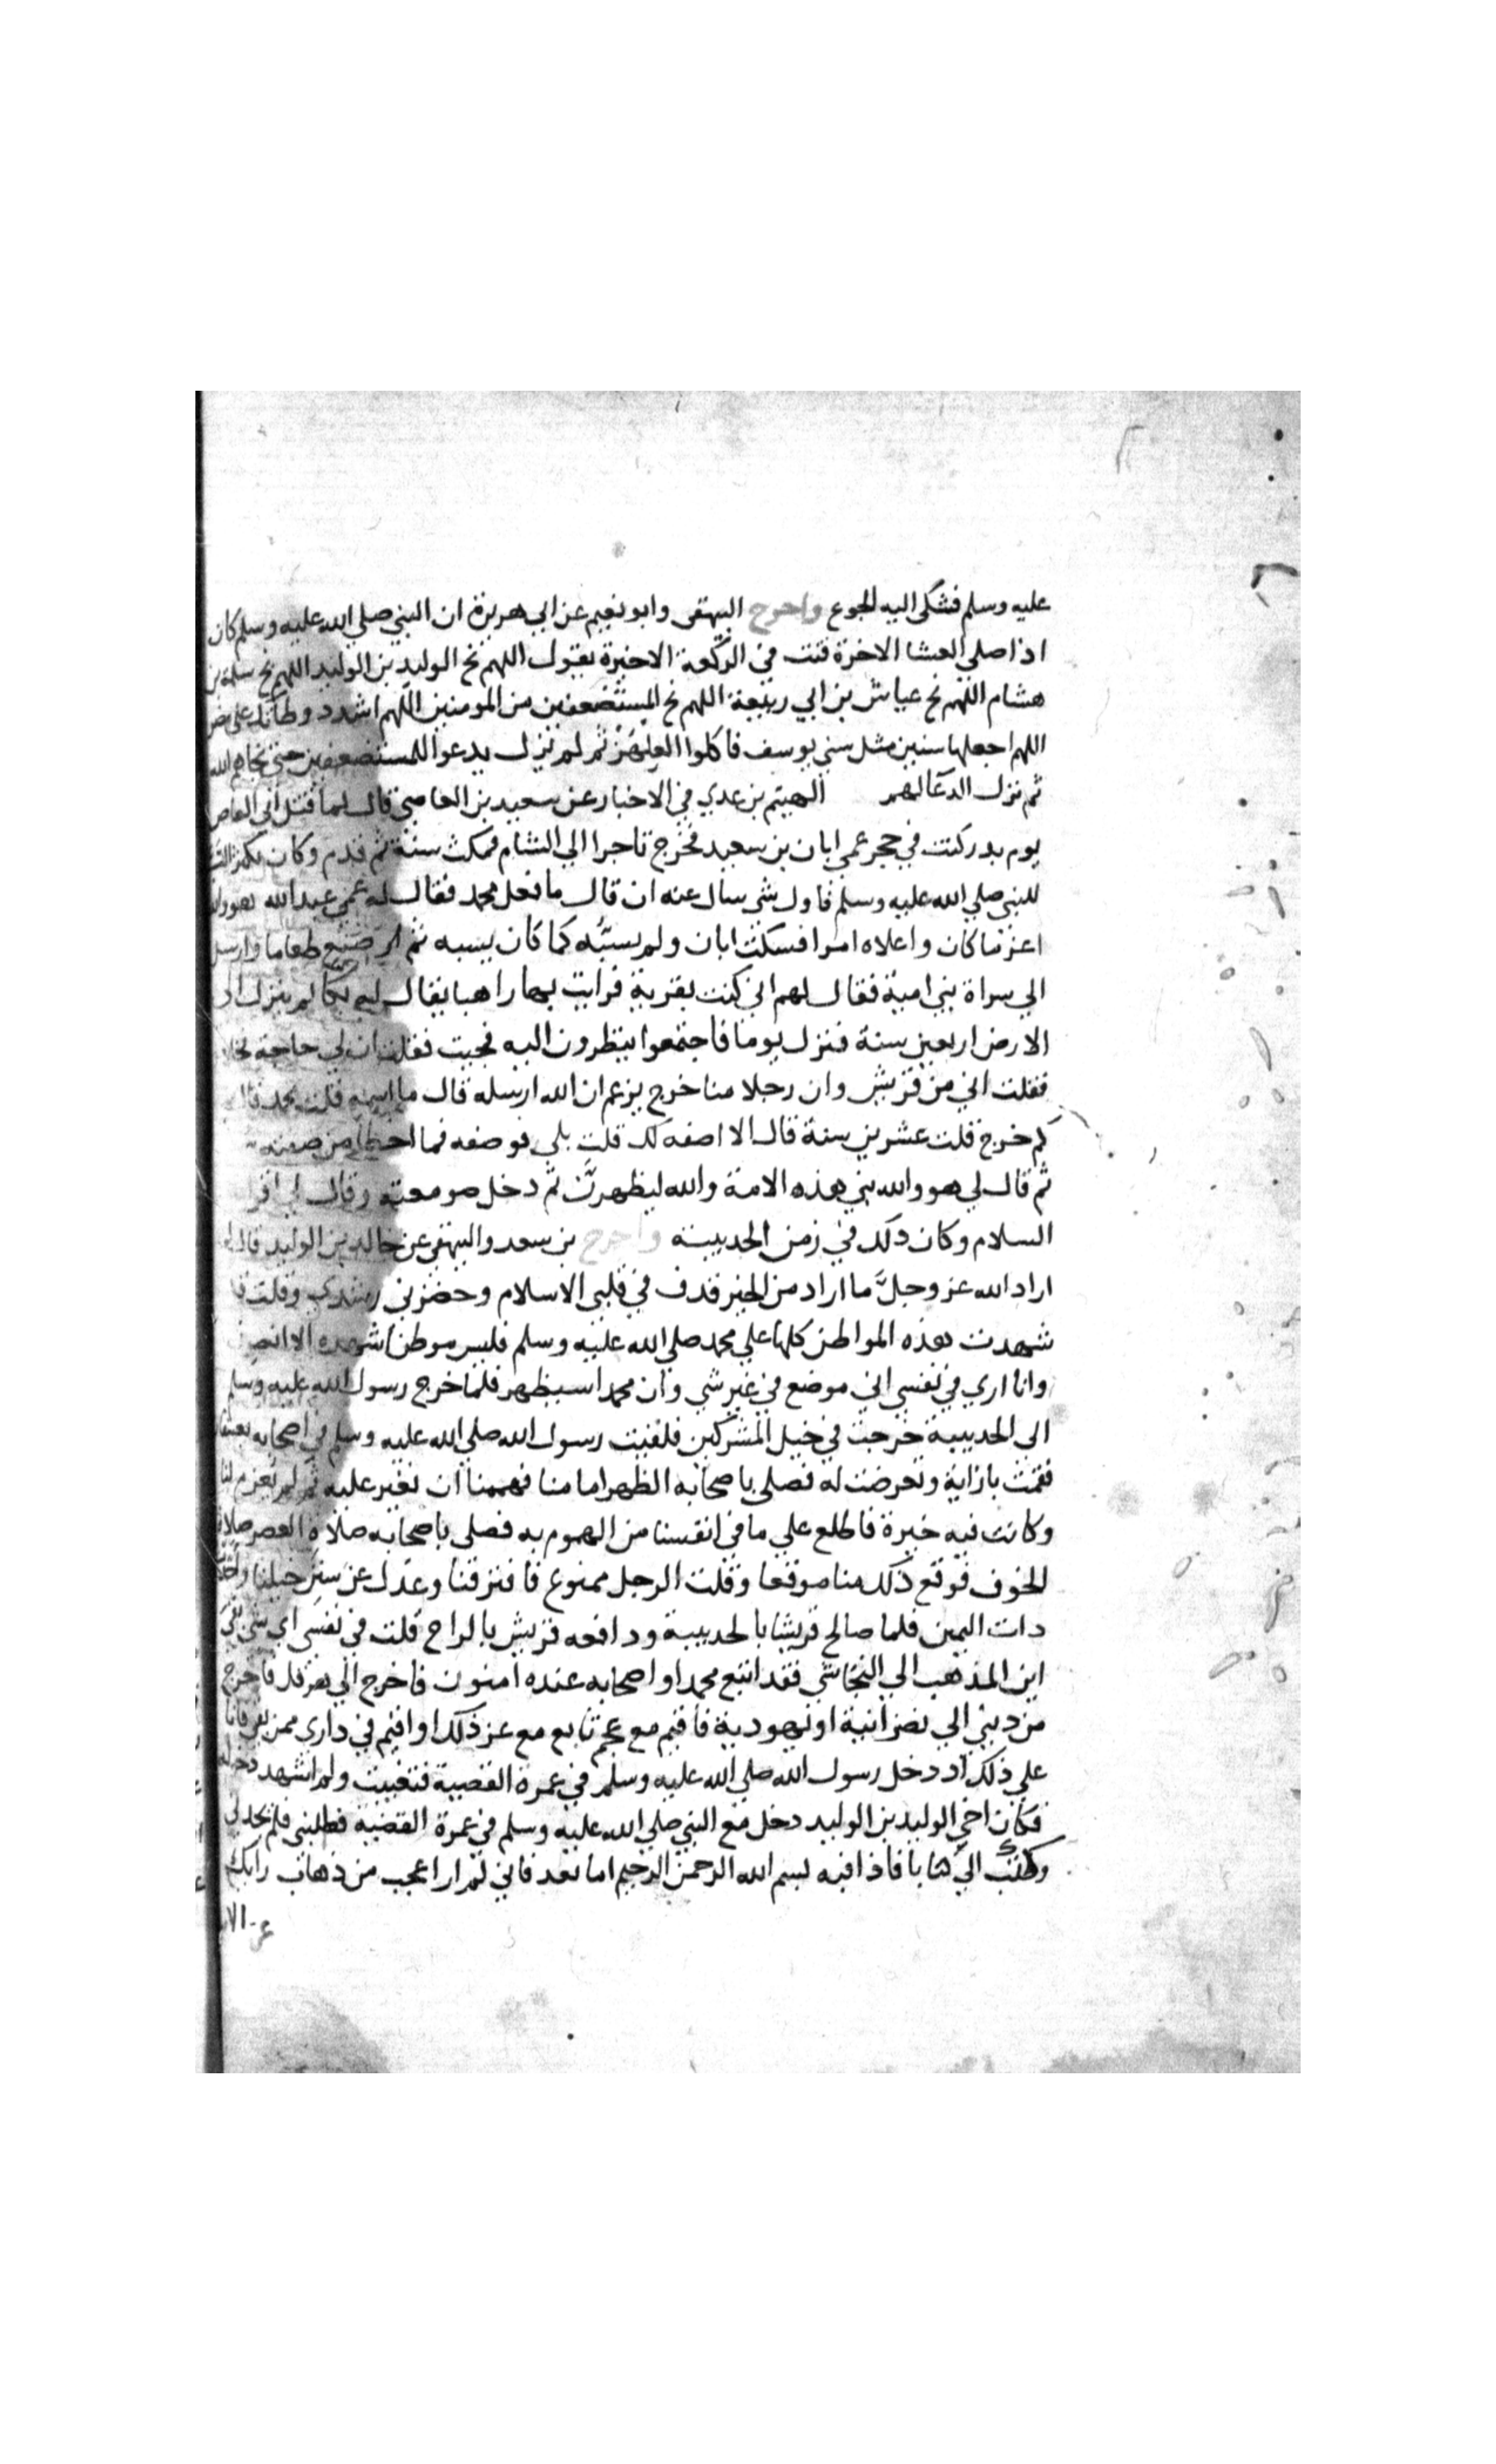 عليه وسلم فشكى اليه الجوع واخرج البيهقى وابو نعيم عن ابي هريرة ان النبي صلي الله عليه وسلم كان
اذا صلي العشا الاخرة قنت في الركعة الاخيرة يقول اللهم نج الوليد بن الوليد اللهم نج سلمة بن
هشام اللهم نج عياش بن ابي ربيعة اللهم نج المستضعفين من المومنين اللهم اشدد وطاتك على مضر
اللهم اجعلها سنين مثل سني يوسف فاكلوا العلهز ثم لم يزل يدعوا للمستضعفين حتي نجاهم الله
ثم نزل الدعا لهم الهيثم بن عدي في الاخبار عن سعيد بن العاصي قال لما قتل ابي العاص
يوم بدر كنت في حجر عمي ابان بن سعيد فخرج تاجرا الي الشام فمكث سنة ثم قدم وكان يكثر السب
للنبي صلي الله عليه وسلم فاول شي سال عنه ان قال ما فعل محمد فقال له عمي عبد الله هو والله
اعز ما كان واعلاه امرا فسكت ابان ولم يسبه كما كان يسبه ثم صنع طعاما وارسل
الي سراة بني امية فقال لهم اني كنت بقرية فرايت بها راهبا يقال له بكا لم ينزل الي
الارض اربعين سنة فنزل يوما فاجتمعوا ينظرون اليه فجيت فقلت ان لي حاجة
فقلت اني من قريش وان رجلا منا خرج يزعم ان الله ارسله قال ما اسمه قلت محمد قال
كم خرج قلت عشرين سنة قال الا اصفه لك قلت بلي فوصفه فما اخطا من صفته
ثم قال لي هو والله نبي هذه الامة والله ليظهرن ثم دخل صومعته وقال لي اقرا
السلام وكان ذلك في زمن الحديبية واخرج بن سعد والبيهقى عن خالد بن الوليد قال لما
اراد الله عز وجل ما اراد من الخير قذف في قلبي الاسلام وحضرني رشدي وقلت قد
شهدت هذه المواطن كلها علي محمد صلي الله عليه وسلم فليس موطن اشهده الا انصرف
وانا اري في نفسي اني موضع في غير شي وان محمدا سيظهر فلما خرج رسول الله عليه وسلم
الي الحديبية خرجت في خيل المشركين فلقيت رسول الله صلي الله عليه وسلم في اصحابه بعسفان
فقمت بازايه وتعرضت له فصلي باصحابه الظهر امامنا فهممنا ان نغير عليه ثم لم يعزم لنا
وكانت فيه خيرة فاطلع علي ما في انفسنا من الهموم به فصلي باصحابه صلاة العصر صلاة
الخوف فوقع ذلك منا موقعا وقلت الرجل ممنوع فافترقنا وعدل عن سنن خيلنا واخذ
ذات اليمين فلما صالح قريشا بالحديبية ودافعه قريش بالراح قلت في نفسي اي شي بقي
اين المذهب الي النجاشي فقد اتبع محمدا واصحابه عنده امنون فاخرج الي هرقل فاخرج
من ديني الي نصرانية او يهودية فاقيم مع عجم تابع مع عز ذلك او اقيم في داري ممن بقي فانا
علي ذلك اذ دخل رسول الله صلي الله عليه وسلم في عمرة القضية فتغيبت ولم اشهد دخوله
فكان اخي الوليد بن الوليد دخل مع النبي صلي الله عليه وسلم في عمرة القضية فطلبني فلم يجدني
وكتب الي كتابا فاذا فيه بسم الله الرحمن الرحيم اما بعد فاني لم ار اعجب من ذهاب رايك
عن الا